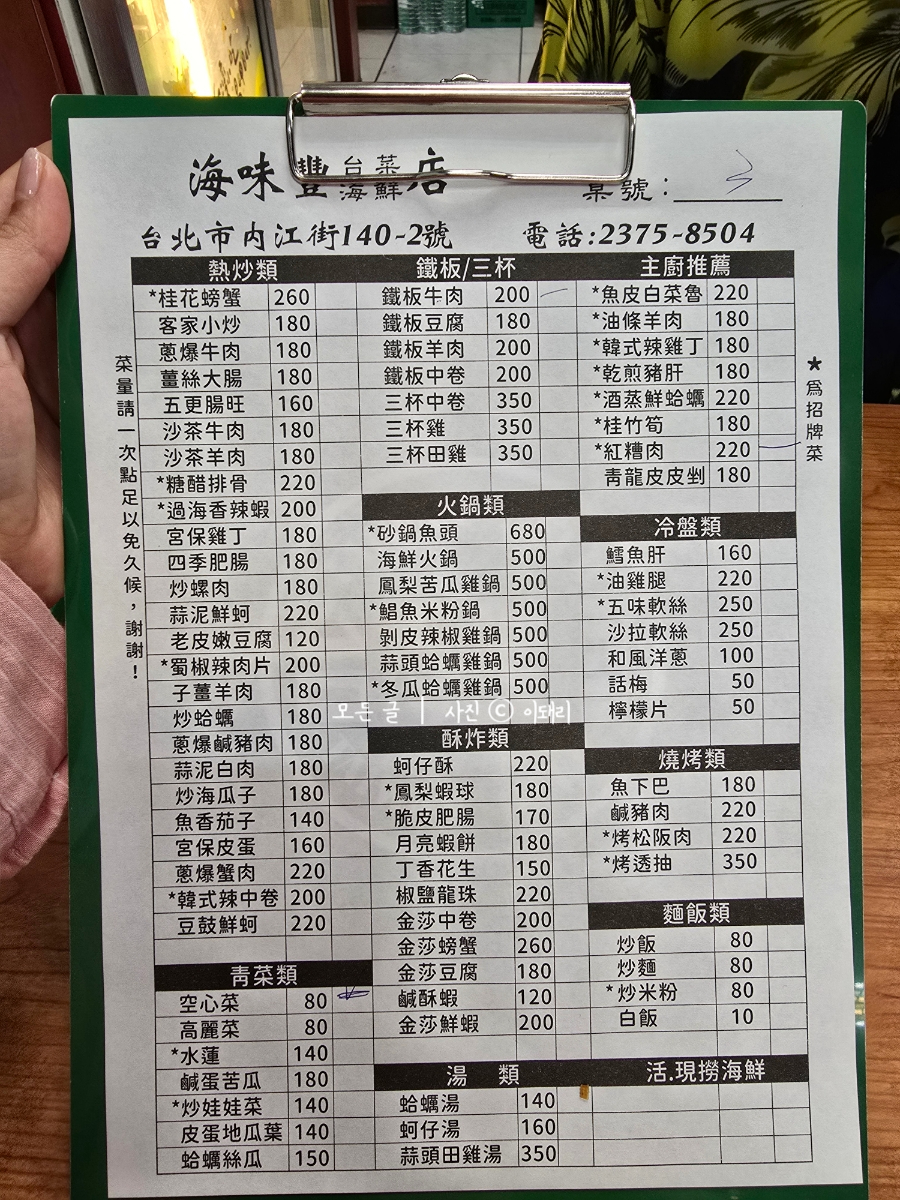 海味豐台菜海鮮店
桌號：3
台北市内江街140-2號 電話:2375-8504
菜量請一次點足以免久候，謝謝！
熱炒類
*桂花螃蟹 260
客家小炒 180
蔥爆牛肉 180
薑絲大腸 180
五更腸旺 160
沙茶牛肉 180
沙茶羊肉 180
*糖醋排骨 220
*過海香辣蝦 200
宮保雞丁 180
四季肥腸 180
炒螺肉 180
蒜泥鮮蚵 220
老皮嫩豆腐 120
*蜀椒辣肉片 200
子薑羊肉 180
炒蛤蠣 180
蔥爆鹹豬肉 180
蒜泥白肉 180
炒海瓜子 180
魚香茄子 140
宮保皮蛋 160
蔥爆蟹肉 220
*韓式辣中卷 200
豆鼓鮮蚵 220
青菜類
空心菜 80
高麗菜 80
*水蓮 140
鹹蛋苦瓜 180
*炒娃娃菜 140
皮蛋地瓜葉 140
蛤蠣絲瓜 150
鐵板/三杯
鐵板牛肉 200
鐵板豆腐 180
鐵板羊肉 200
鐵板中卷 200
三杯中卷 350
三杯雞 350
三杯田雞 350
火鍋類
*砂鍋魚頭 680
海鮮火鍋 500
鳳梨苦瓜雞鍋 500
*鯧魚米粉鍋 500
剝皮辣椒雞鍋 500
蒜頭蛤蠣雞鍋 500
*冬瓜蛤蠣雞鍋 500
모든 글 | 사진 ⓒ 이태리
酥炸類
蚵仔酥 220
*鳳梨蝦球 180
*脆皮肥腸 170
月亮蝦餅 180
丁香花生 150
椒鹽龍珠 220
金莎中卷 200
金莎螃蟹 260
金莎豆腐 180
鹹酥蝦 120
金莎鮮蝦 200
湯 類
蛤蠣湯 140
蚵仔湯 160
蒜頭田雞湯 350
主廚推薦
*魚皮白菜魯 220
*油條羊肉 180
*韓式辣雞丁 180
*乾煎豬肝 180
*酒蒸鮮蛤蠣 220
*桂竹筍 180
*紅糟肉 220
青龍皮皮剉 180
冷盤類
鱈魚肝 160
*油雞腿 220
*五味軟絲 250
沙拉軟絲 250
和風洋蔥 100
話梅 50
檸檬片 50
燒烤類
魚下巴 180
鹹豬肉 220
*烤松阪肉 220
*烤透抽 350
麵飯類
炒飯 80
炒麵 80
*炒米粉 80
白飯 10
活.現撈海鮮
★為招牌菜